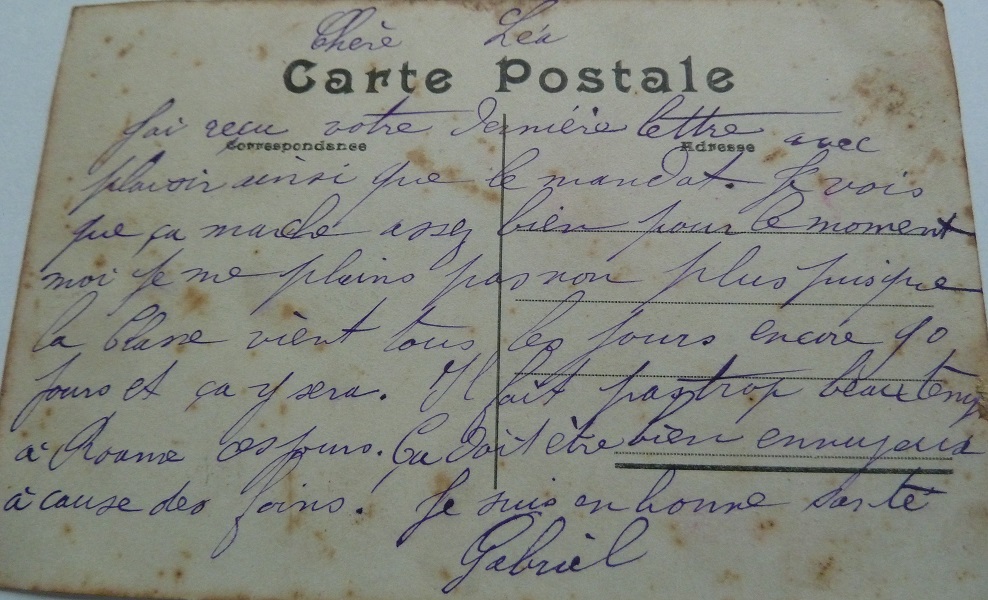 Chère Léa
Carte Postale
J'ai reçu votre dernière lettre avec
Correspondance Adresse
plaisir ainsi que le mandat. Je vois
que ça marche assez bien pour le moment
moi je me plains pas non plus puisque
la Classe vient tous les jours encore 90
jours et ça y sera. Il fait pas trop beau temps
à Roanne ces jours. Ça doit être bien ennuyeux
à cause des foins. Je suis en bonne santé
Gabriel